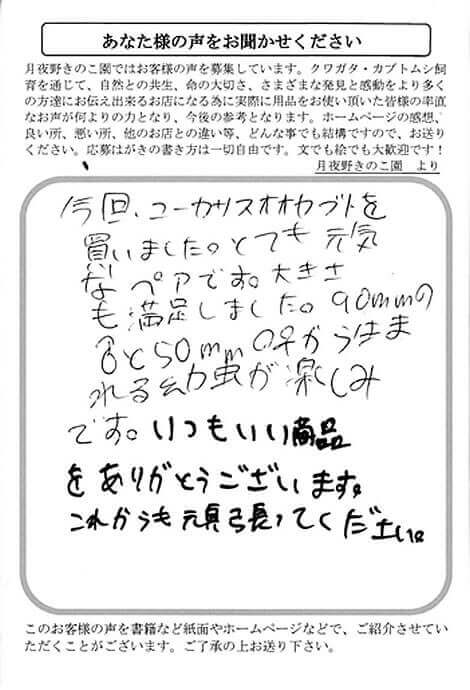 あなた様の声をお聞かせください
月夜野きのこ園ではお客様の声を募集しています。クワガタ・カブトムシ飼
育を通じて、自然との共生、命の大切さ、さまざまな発見と感動をより多く
の方達にお伝え出来るお店になる為に実際に用品をお使い頂いた皆様の率直
なお声が何よりの力となり、今後の参考となります。ホームページの感想、
良い所、悪い所、他のお店との違い等、どんな事でも結構ですので、お送り
ください。応募はがきの書き方は一切自由です。文でも絵でも大歓迎です！
月夜野きのこ園　より
今回、コーカサスオオカブトを
買いました。とても元気
なペアです。大きさ
も満足しました。90mmの
♂と50mmの♀からうま
れる幼虫が楽しみ
です。いつもいい商品
をありがとうございます。
これからも頑張ってください。
このお客様の声を書籍など紙面やホームページなどで、ご紹介させてい
ただくことがございます。ご了承の上お送り下さい。